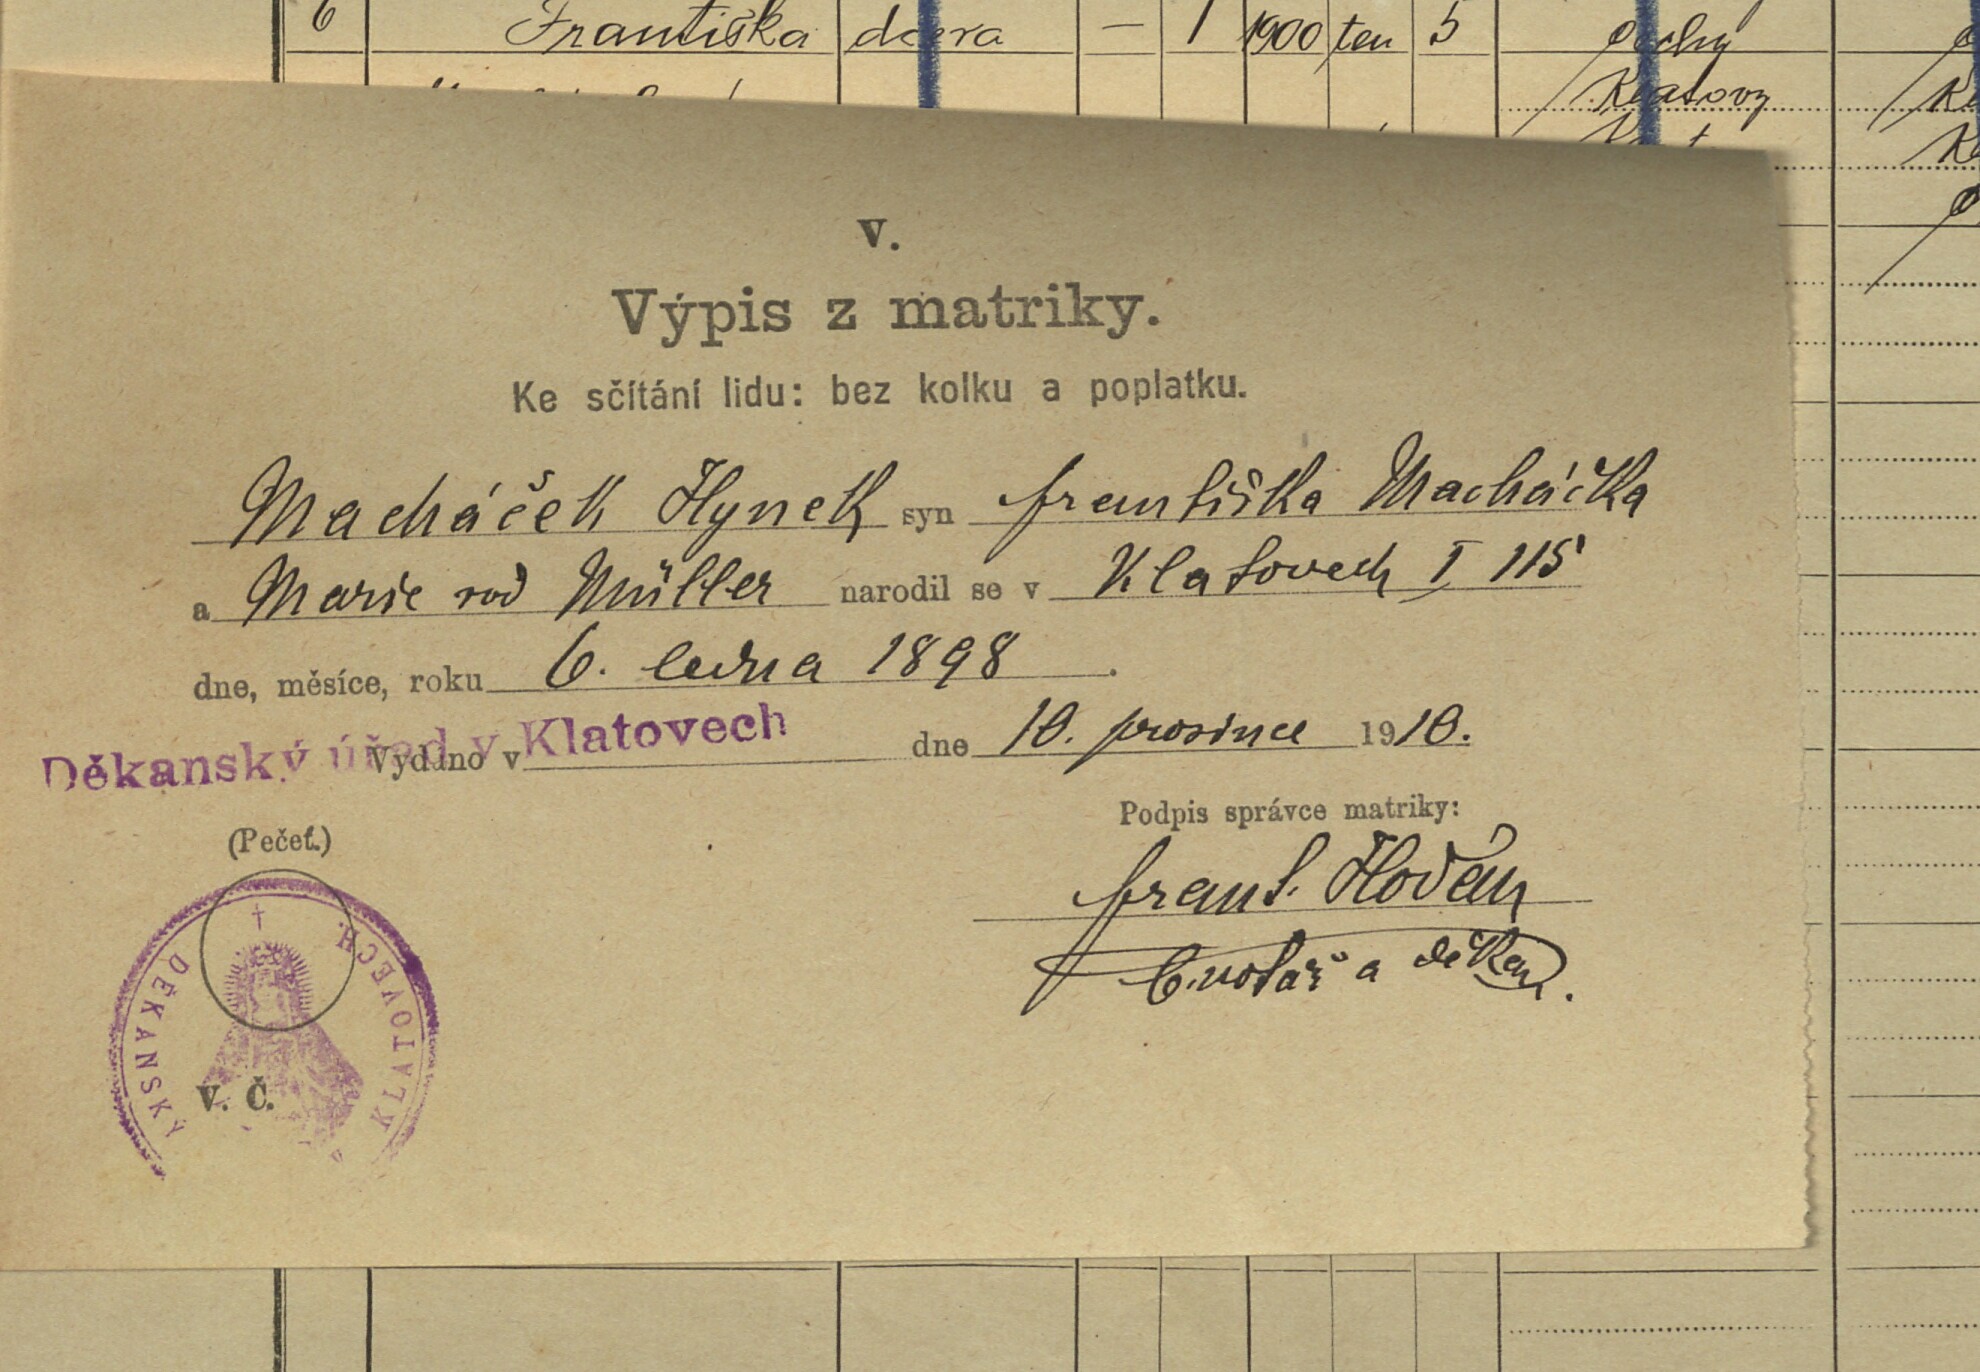 6 Františka dcera — 1 1900 ten 5
Klatovy
V.
Výpis z matriky.
Ke sčítání lidu: bez kolku a poplatku.
Macháček Hynek syn Františka Macháčka
a Marie rod Müller narodil se v Klatovech I 115
dne, měsíce, roku 6. ledna 1898.
Děkanský úřad v Klatovech
Vydáno v dne 10. prosince 1910.
Podpis správce matriky:
(Pečeť.)
Frant. Hován
b. notář a děkan.
DĚKANSKÝ KLATOVECH.
V. Č.